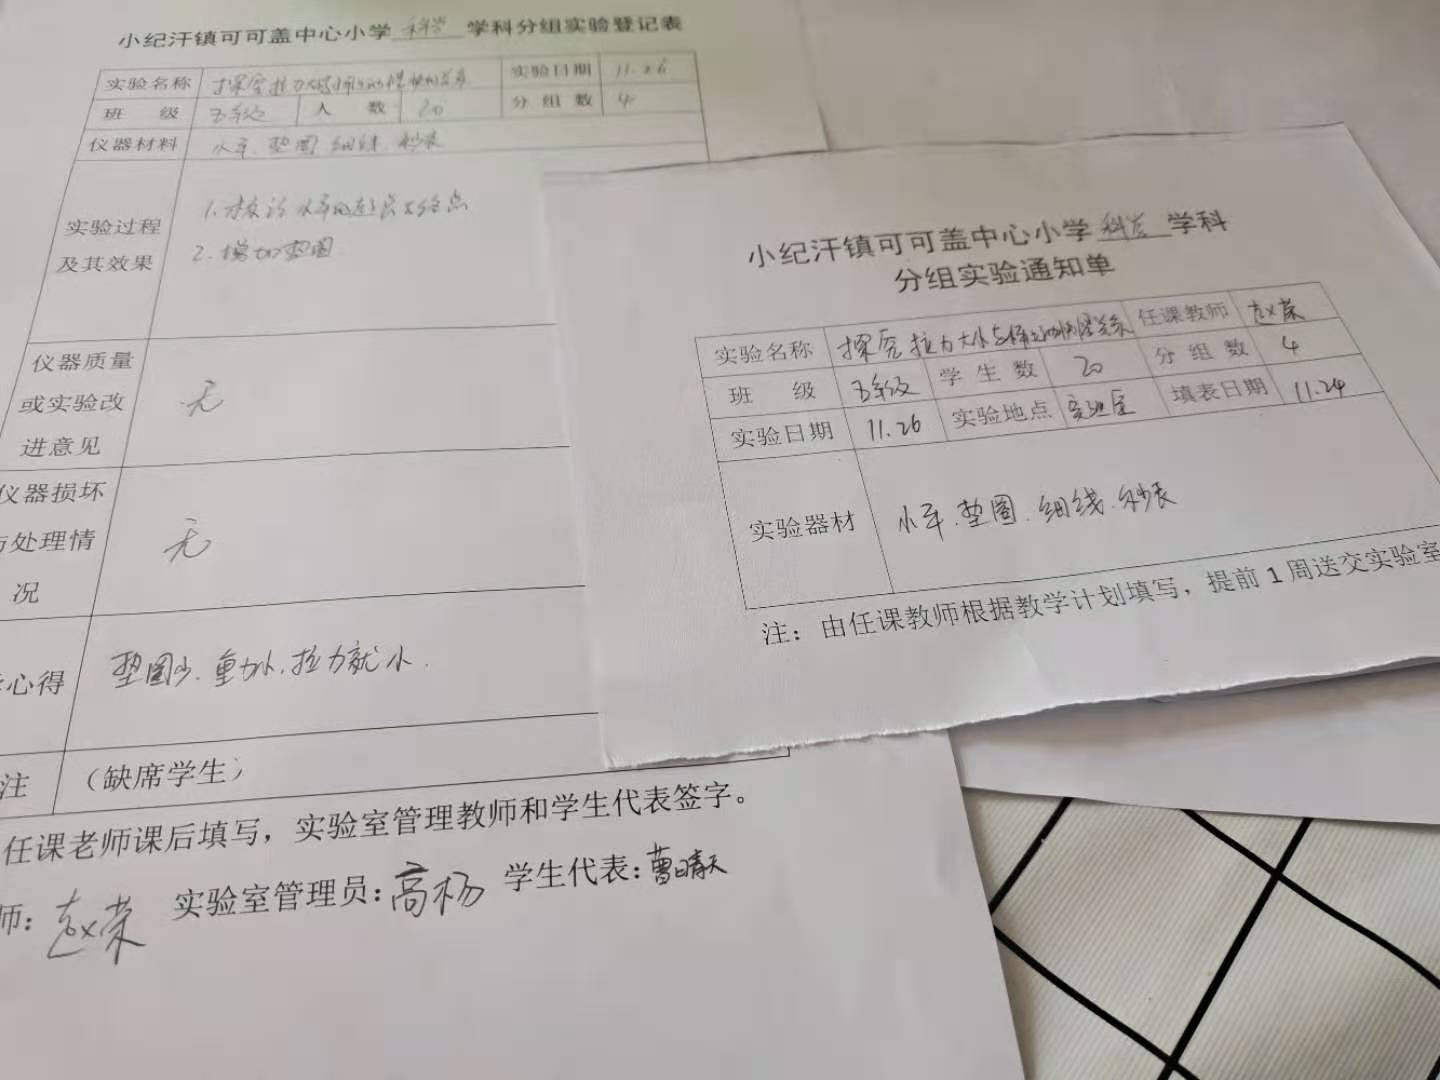 小纪汗镇可可盖中心小学 科学 学科分组实验登记表
实验名称 探究拉力大小与 实验日期 11.26
班 级 五年级 人 数 20 分 组 数 4
仪器材料 小车、垫圈、细线、秒表
实验过程
及其效果
1.标记小车的起点与终点
2.增加垫圈
仪器质量
或实验改
进意见
无
仪器损坏
与处理情
况
无
心得
垫圈少、重力小、拉力就小.
注 (缺席学生)
任课老师课后填写,实验室管理教师和学生代表签字。
师: 赵荣 实验室管理员: 高杨 学生代表: 曹晴天
小纪汗镇可可盖中心小学 科学 学科
分组实验通知单
实验名称 探究拉力大小与 关系 任课教师 赵荣
班 级 五年级 学 生 数 20 分 组 数 4
实验日期 11.26 实验地点 实验室 填表日期 11.24
实验器材 小车、垫圈、细线、秒表
注:由任课教师根据教学计划填写,提前1周送交实验室